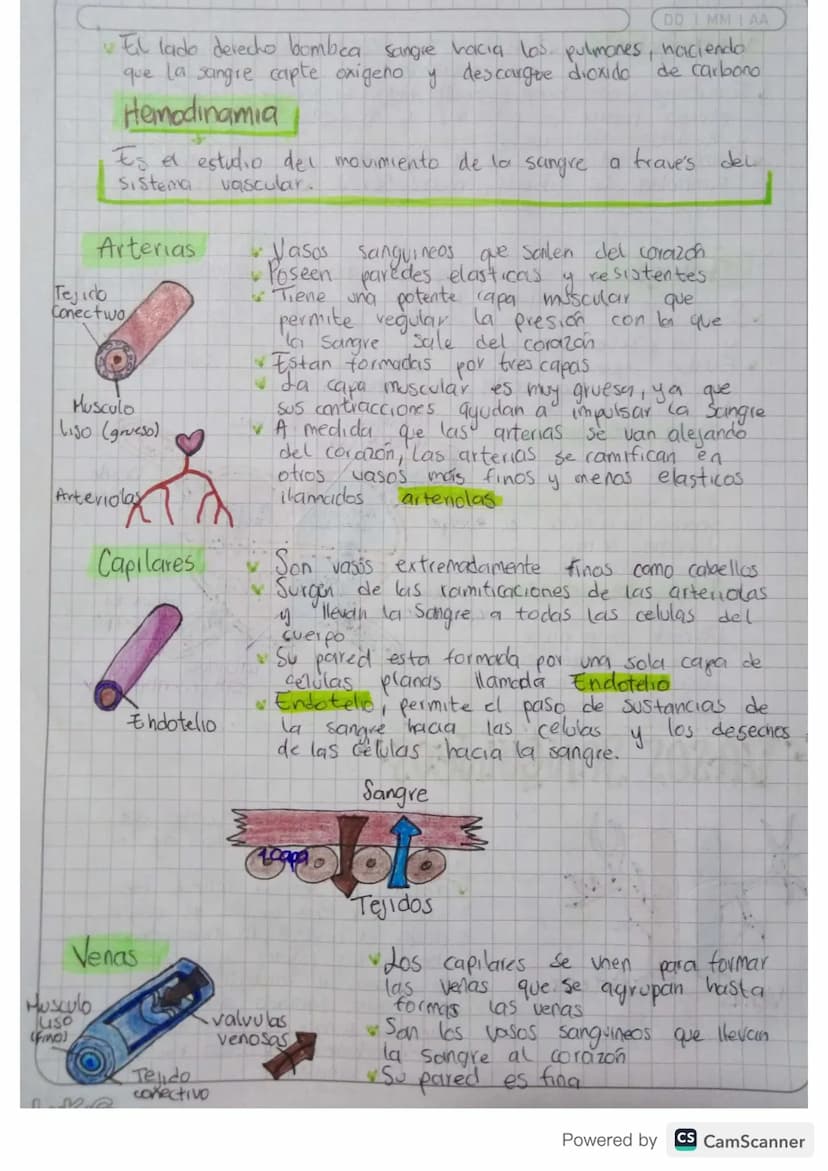 DD | MM | AA
El lado derecho bombea sangre hacia los pulmones, haciendo
que la sangre capte oxigeno y descargue dioxido de carbono
Hemodinamia
Es el estudio del movimiento de la sangre a través del
sistema vascular.
Arterias
Vasos sanguineos que salen del corazón
Poseen paredes elasticas y resistentes
Tiene una potente capa muscular que
permite regular la presión con la que
la sangre sale del corazón
Estan formadas por tres capas
La capa muscular es muy gruesa, ya que
sus contracciones ayudan a impulsar la sangre
A medida que las arterias se van alejando
del corazón, las arterias se ramifican en
otros vasos más finos y menos elasticos
llamados arteriolas
Tejido
Conectivo
Musculo
Liso (grueso)
Arteriolas
Capilares
Son vasos extremadamente finos como cabellos
Surgen de las ramificaciones de las arteriolas
y llevan la sangre a todas las celulas del
cuerpo
Su pared esta formada por una sola capa de
celulas planas llamada Endotelio
Endotelio, permite el paso de sustancias de
la sangre hacia las celulas y los desechos
de las células hacia la sangre.
Endotelio
Sangre
1 capa
Tejidos
Venas
Musculo
Liso
(fino)
valvulas
venosas
Tejido
conectivo
Los capilares se unen para formar
las venas que se agrupan hasta
formas las venas
Son los vasos sanguineos que llevan
la sangre al corazón
Su pared es fina
Powered by CS CamScanner